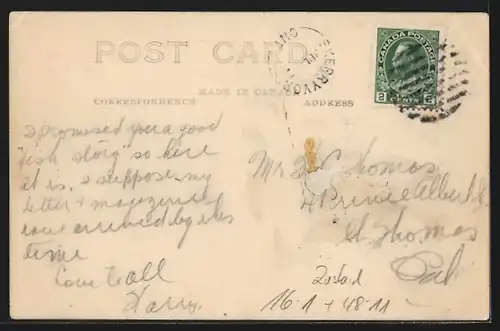 POST CARD
CANADA POSTAGE
2 CENTS 2
MADE IN CANADA
CORRESPONDENCE
ADDRESS
I promised you a good
"fish story" so here
it is. I suppose my
letter + magazines
have arrived by this
time
Love to all
Harry.
Mr H C Thomas
4 Prince Albert St
St Thomas
16-1 + 48-11